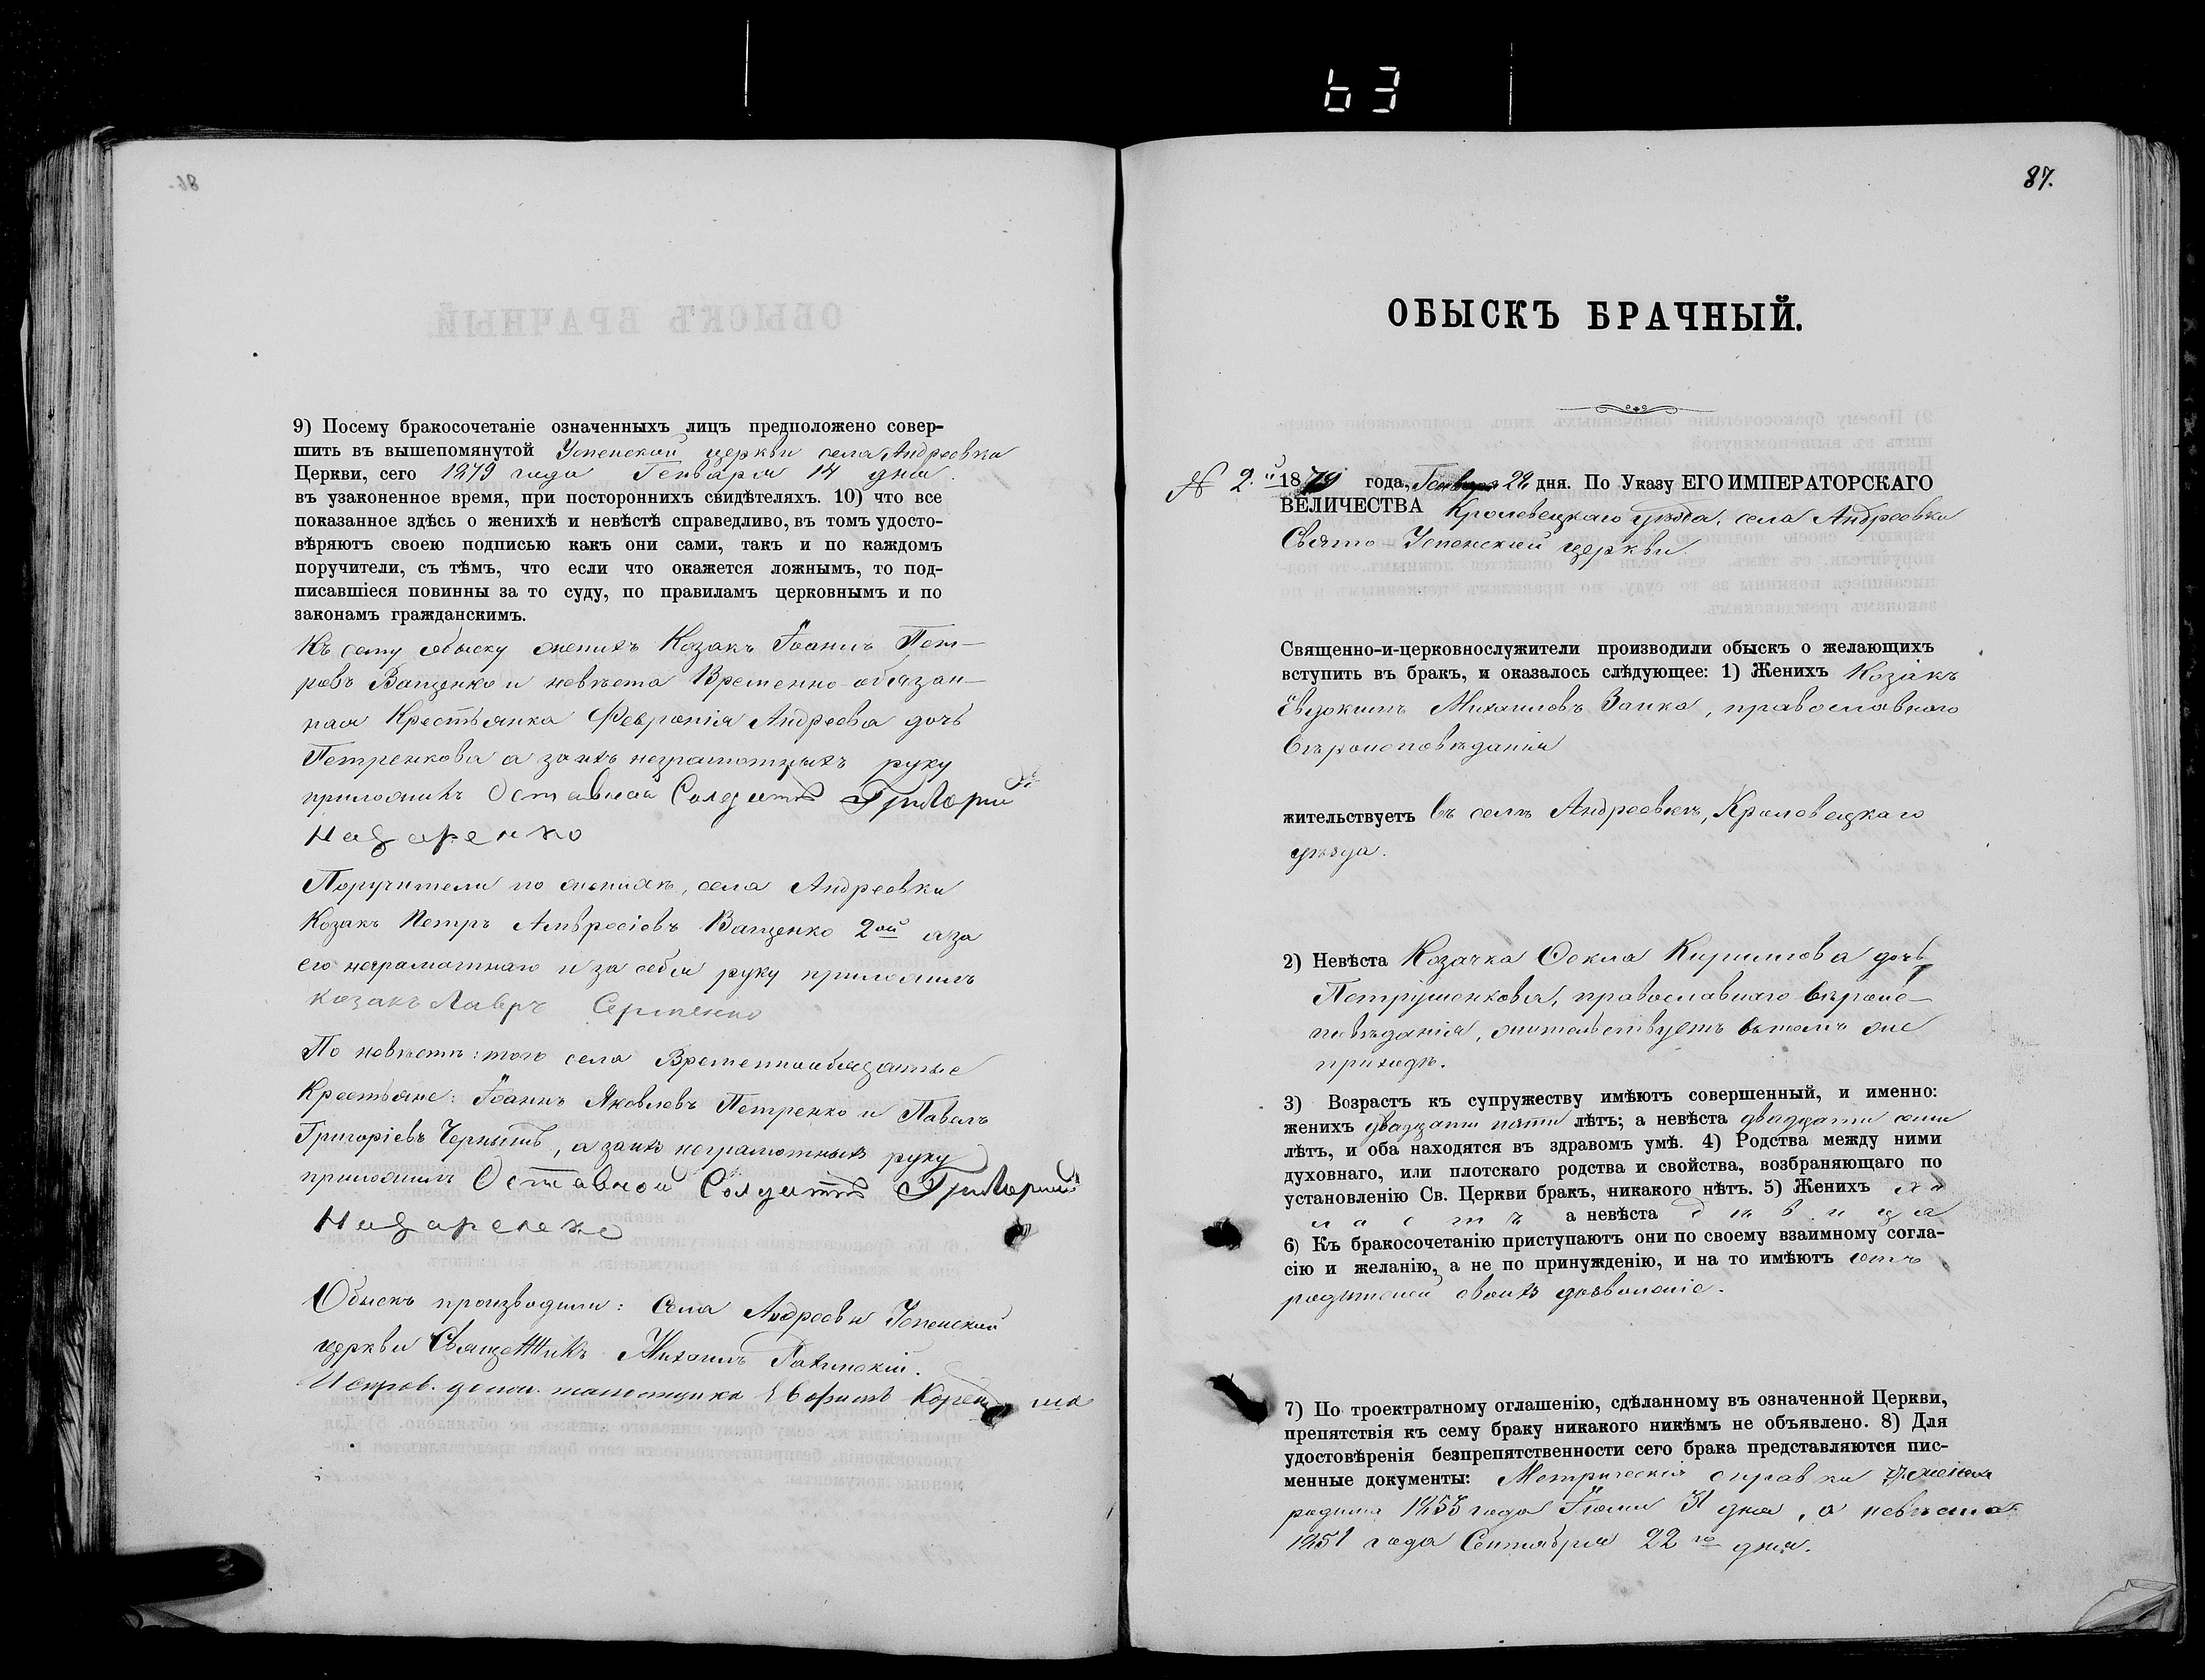 63
86.
9) Посему бракосочетаніе означенныхъ лицъ предположено совер-
шить въ вышепомянутой Успенской церкви села Андреевки
Церкви, сего 1879 года Генваря 14 дня.
въ узаконенное время, при постороннихъ свидѣтеляхъ. 10) что все
показанное здѣсь о женихѣ и невѣстѣ справедливо, въ томъ удосто-
вѣряютъ своею подписью какъ они сами, такъ и по каждомъ
поручители, съ тѣмъ, что если что окажется ложнымъ, то под-
писавшіеся повинны за то суду, по правиламъ церковнымъ и по
законамъ гражданскимъ.
Къ сему обыску женихъ Козакъ Іоаннъ Пет-
ровъ Ващенко и невѣста Временно-обязан-
ная Крестьянка Февронія Андреева дочь
Петренкова а за ихъ неграмотныхъ руку
приложилъ Оставной Солдатъ Григорій
Назаренко
Поручители по женихѣ, села Андреевки
Козакъ Петръ Амвросіевъ Ващенко 2ой а за
его неграмотнаго и за себя руку приложилъ
козакъ Лавръ Сергиенко
По невѣстѣ: того села Временнообязанные
Крестьяне: Іоаннъ Яковлевъ Петренко и Павелъ
Григоріевъ Чернышъ, а за ихъ неграмотныхъ руку
приложилъ Оставной Солдатъ Григорий
Назаренко
Обыскъ производили: Села Андреевки Успенской
церкви Священникъ Михаилъ
Испров. долж. псаломщика Евфимъ
87.
ОБЫСКЪ БРАЧНЫЙ.
№ 2.й 1879 года, Генваря 22 дня. По Указу ЕГО ИМПЕРАТОРСКАГО
ВЕЛИЧЕСТВА Кролевецкаго уѣзда, села Андреевки
Свято-Успенской церкви
Священно-и-церковнослужители производили обыскъ о желающихъ
вступить въ бракъ, и оказалось слѣдующее: 1) Женихъ Козакъ
Евдокимъ Михаиловъ Заика, православнаго
вѣроисповѣданія
жительствуетъ въ селѣ Андреевкѣ, Кролевецкаго
уѣзда.
2) Невѣста Козачка Ѳекла Кирилова дочь
Петрушенкова, православнаго вѣроис-
повѣданія, жительствуетъ въ томъ же
приходѣ.
3) Возрастъ къ супружеству имѣютъ совершенный, и именно:
женихъ двадцати пяти лѣтъ; а невѣста двадцати семи
лѣтъ, и оба находятся въ здравомъ умѣ. 4) Родства между ними
духовнаго, или плотскаго родства и свойства, возбраняющаго по
установленію Св. Церкви бракъ, никакого нѣтъ. 5) Женихъ хо
лостъ а невѣста дѣвица
6) Къ бракосочетанію приступаютъ они по своему взаимному согла-
сію и желанію, а не по принужденію, и на то имѣютъ отъ
родителей своихъ дозволеніе.
7) По троектратному оглашенію, сдѣланному въ означенной Церкви,
препятствія къ сему браку никакого никѣмъ не объявлено. 8) Для
удостовѣренія безпрепятственности сего брака представляются пис-
менные документы: Метрическія справки женихъ
родился 1853 года Іюля 31 дня, а невѣста
1851 года Сентября 22го дня.